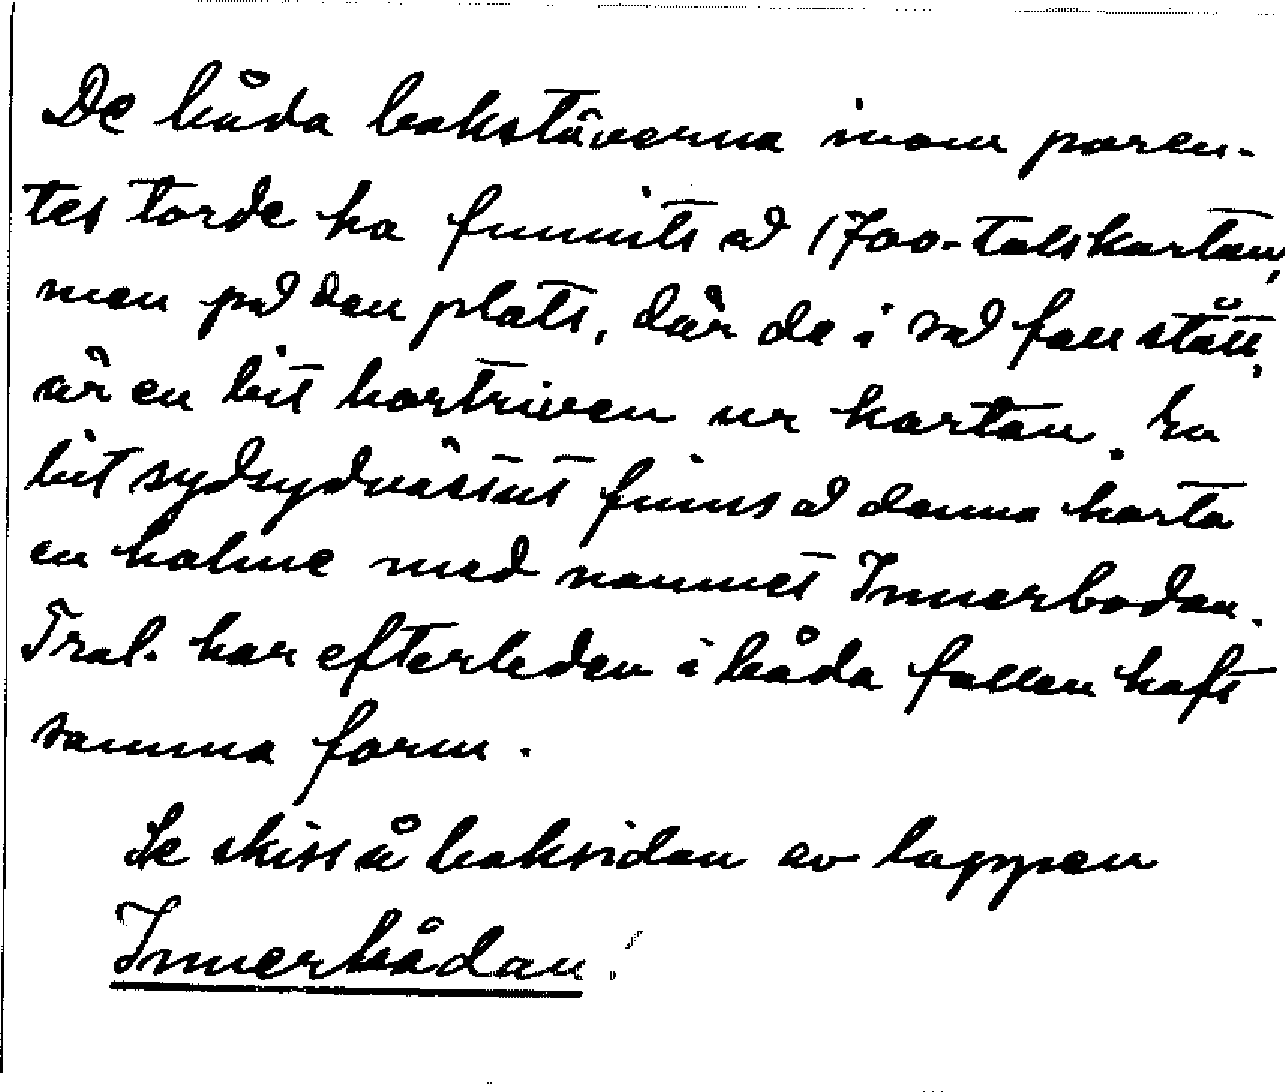 De båda bokstäverna inom paren-
tes torde ha funnits å 1700-talskartan,
men på den plats, där de i så fall stått,
är en bit bortriven ur kartan. En
bit sydsydväst finns å denna karta
en holme med namnet Innerbodan.
Trol. har efterleden i båda fallen haft
samma form.
Se skiss å baksidan av lappen
Innerbådan!